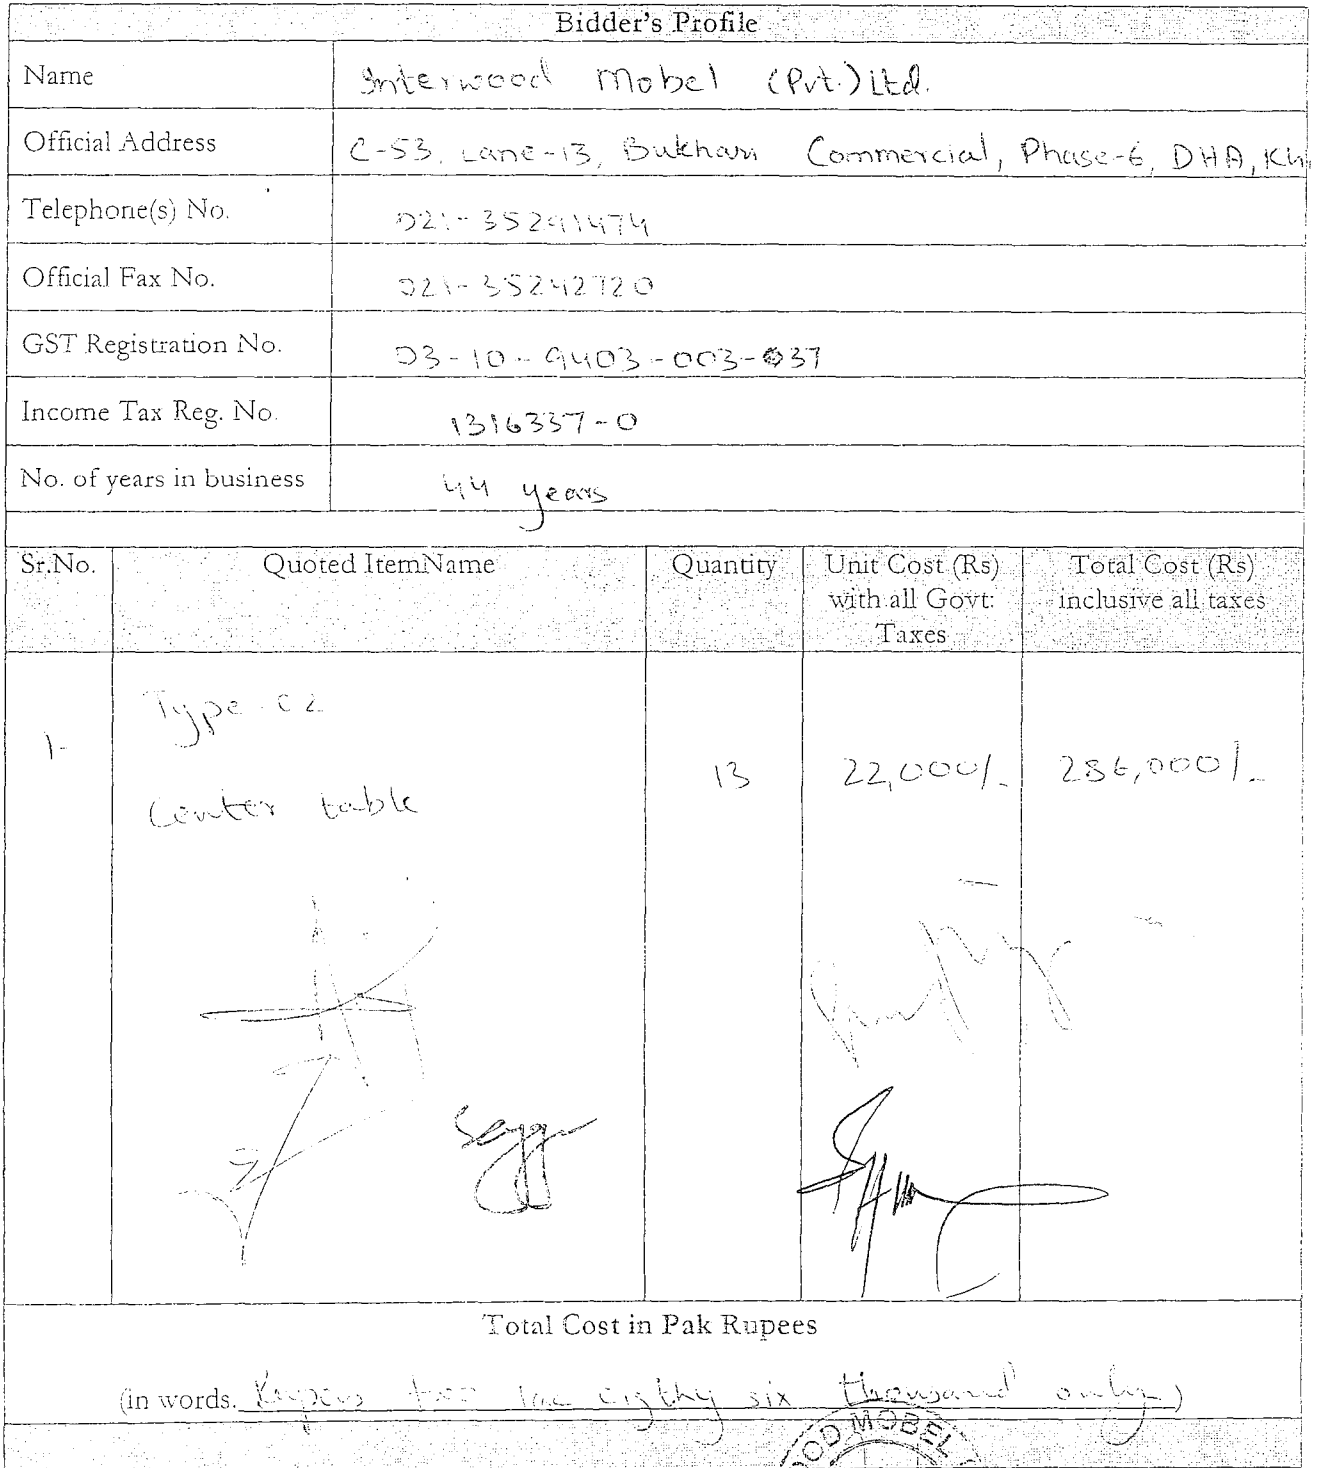 Bidder's Profile
Name Interwood Mobel (Pvt.) Ltd.
Official Address C-53, Lane-13, Bukhari Commercial, Phase-6, DHA, Khi
Telephone(s) No. 021-35291474
Official Fax No. 021-35242720
GST Registration No. 03-10-9403-003-037
Income Tax Reg. No. 1316337-0
No. of years in business 44 years
Sr.No. Quoted ItemName Quantity Unit Cost (Rs) Total Cost (Rs)
with all Govt: inclusive all taxes
Taxes
Type-C2
1- 13 22,000/- 286,000/-
Center table
Total Cost in Pak Rupees
(in words. Rupees two lac eigthy six thousand only)
OOD MOBEL